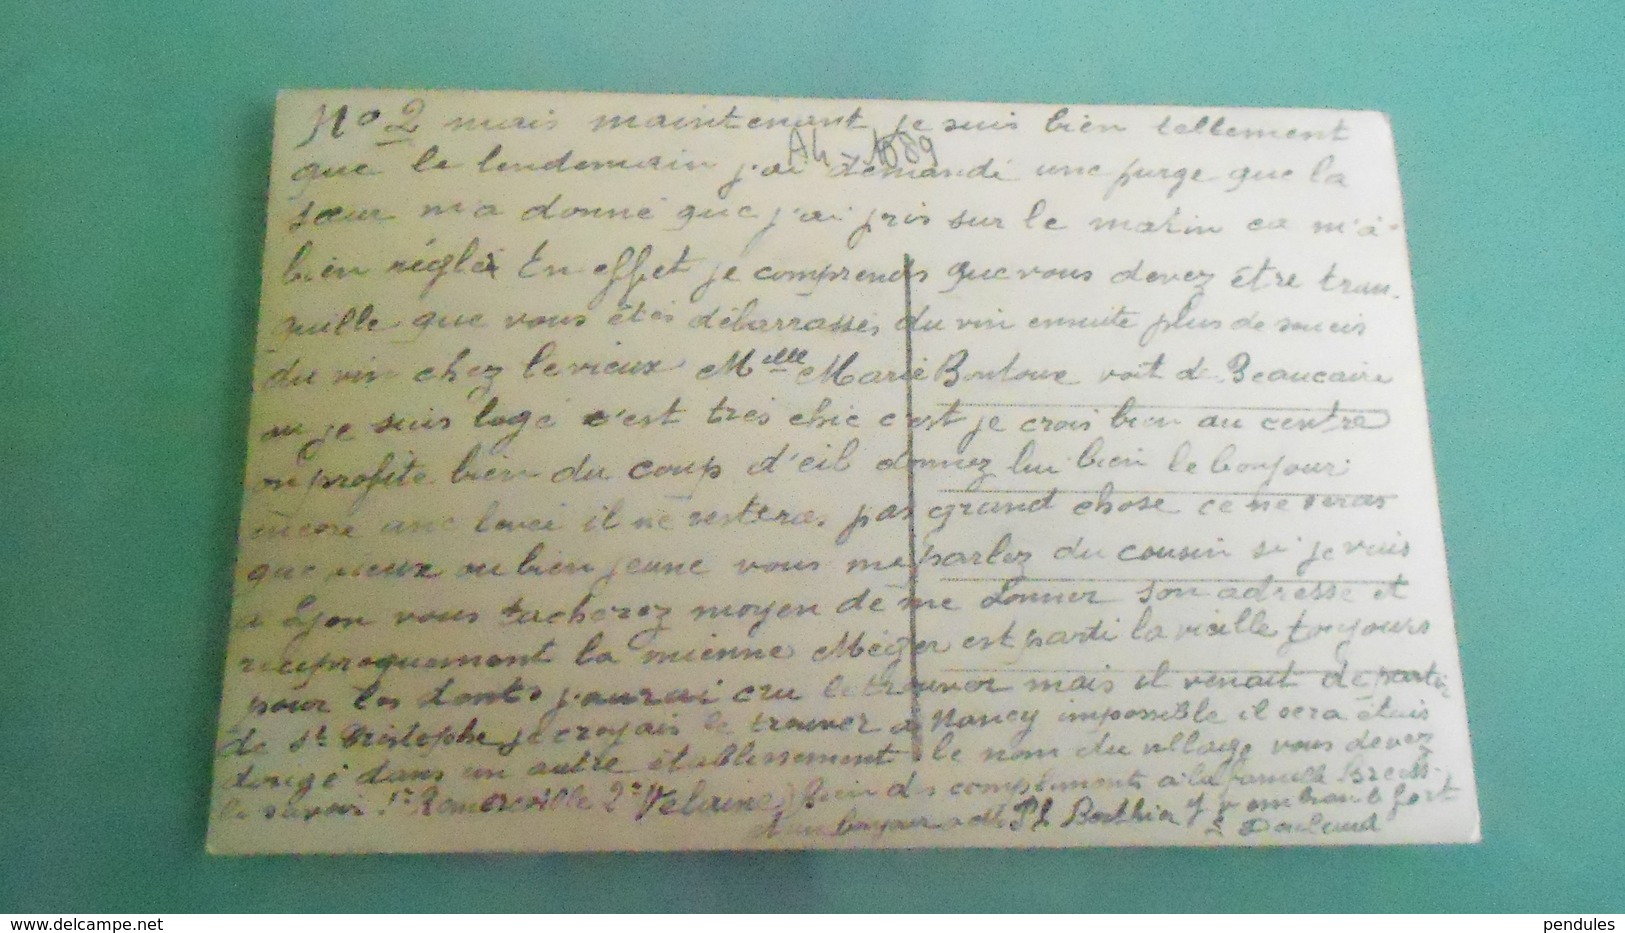 No 2 mais maintenant je suis bien tellement
A4 1089
que le lendemain j'ai demandé une purge que la
sœur m'a donné que j'ai pris sur le matin ca m'à
bien réglé En effet je comprends que vous devez être tran-
quille que vous étes débarrassés du vin ensuite plus de soucis
du vin chez le vieux Melle Marie Boutoux voit de Beaucaire
ou je suis logé c'est très chic c'est je crois bien au centre
on profite bien du coup d'eil donnez lui bien le bonjour
encore une levée il ne resteras pas grand chose ce ne seras
que vieux ou bien jeune vous me parlez du cousin si je vais
a Lyon vous tacherez moyen de me donner son adresse et
reciproquement la mienne Méger est parti la vieille toujours
pour les dents j'aurai cru le trouver mais il venait de partir
de St Cristophe je croyais le trouver a Nancy impossible il sera étais
dirigé dans un autre établissement le nom du village vous devez
le savoir 1r Romereville 2r Velaine) Bien des compliments a la famille
et un bonjour a Ph Berthier